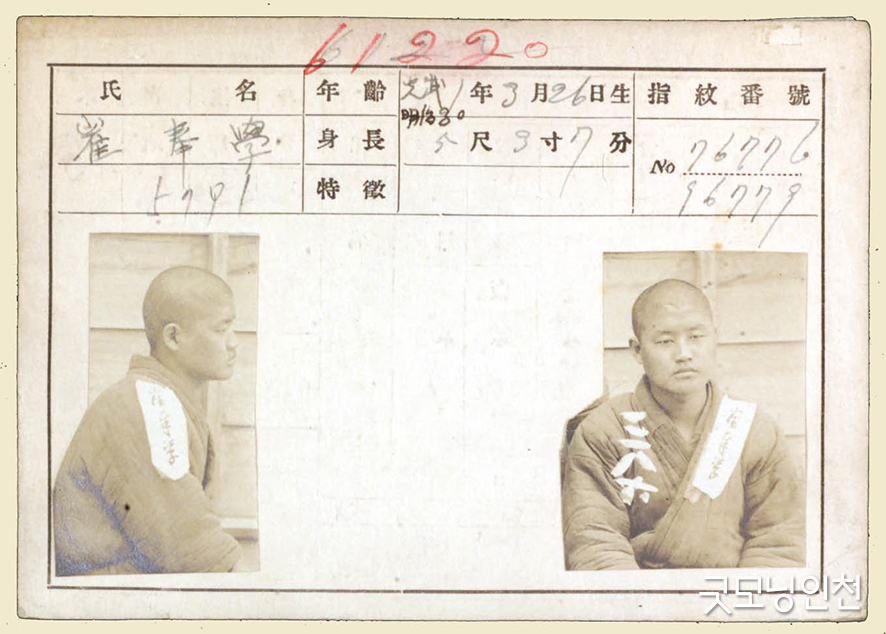 61220
氏名 年齡 光武1年3月26日生 指紋番號
明治30
崔奉學 身長 5尺3寸7分 No 76776
5791 特徵 96779
崔奉学
三八六 崔奉学
굿모닝인천